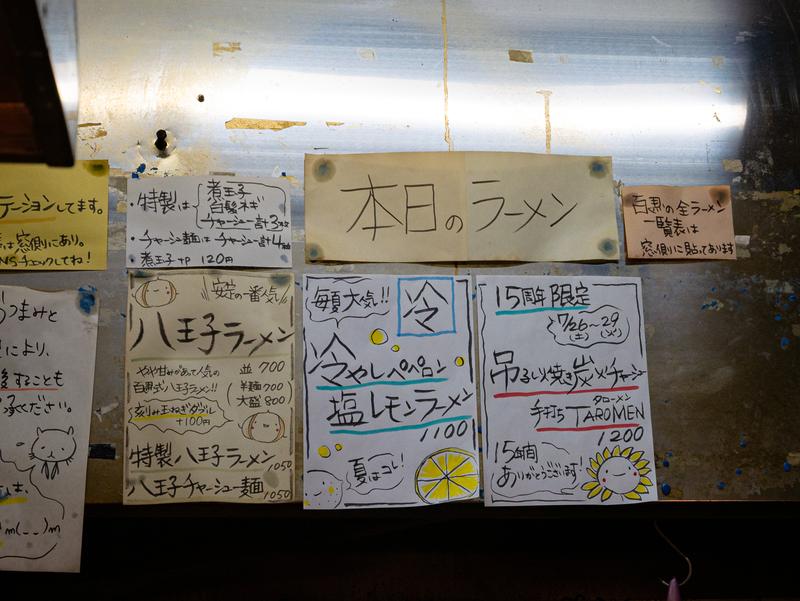 テーションしてます。
は窓側にあり。
NSチェックしてね!
・特製は
煮玉子
白髪ネギ
チャーシュー計3枚
・チャーシュー麺はチャーシュー計4枚
・煮玉子TP 120円
本日のラーメン
百黒の全ラーメン
一覧表は
窓側に貼ってあります
つまみと
により、
することも
承ください。
m(__)m
安定の一番人気
八王子ラーメン
やや甘みがあって人気の
百黒式八王子ラーメン!!
並 700
半麺 700
大盛 800
刻み玉ねぎダブル
+100円
特製八王子ラーメン 1050
八王子チャーシュー麺 1050
毎夏大人気!!
冷
冷やしペペロン
塩レモンラーメン
1100
夏はコレ!
15周年限定
7/26~29
(土) (火)
吊るし焼き炭火チャーシュー
手打ち TAROMEN
タローメン
1200
15年間
ありがとうございます!